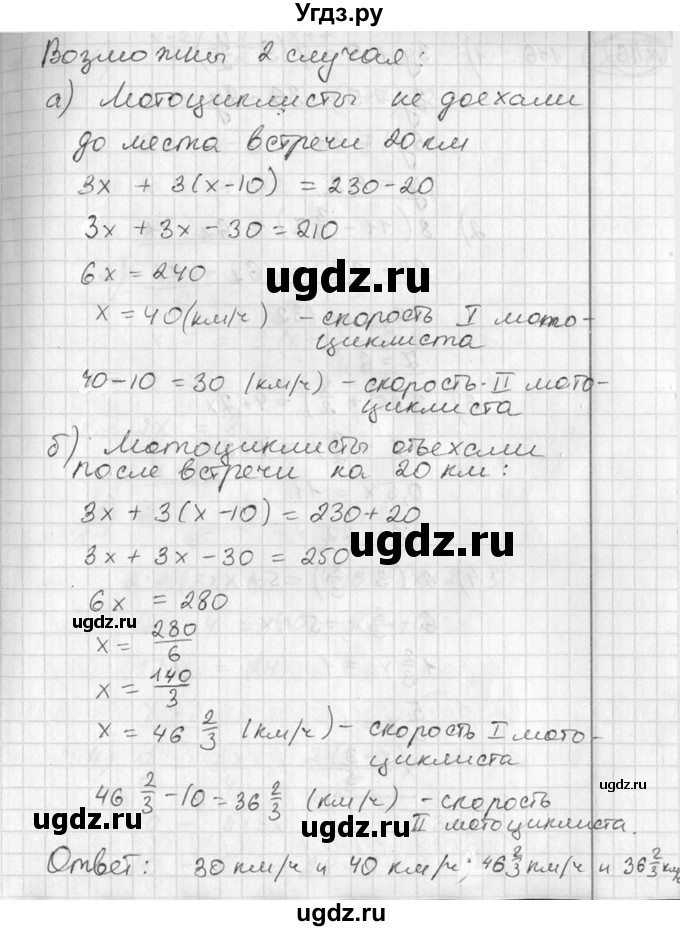 Угдз.ру
Возможны 2 случая:
а) Мотоциклисты не доехали
до места встречи 20 км
3x + 3(x-10) = 230-20
3x + 3x - 30 = 210
6x = 240
ugdz.ru
x = 40 (км/ч) - скорость I мото-
циклиста
40-10 = 30 (км/ч) - скорость II мото-
циклиста
б) Мотоциклисты отъехали
после встречи на 20 км:
3x + 3(x-10) = 230+20
3x + 3x - 30 = 250
ugdz.ru
6x = 280
ugdz.ru
x = 280/6
x = 140/3
x = 46 2/3 (км/ч) - скорость I мото-
циклиста
ugdz.ru
46 2/3 - 10 = 36 2/3 (км/ч) - скорость
II мотоциклиста.
ugdz.ru
Ответ: 30 км/ч и 40 км/ч; 46 2/3 км/ч и 36 2/3 км/
ugdz.ru